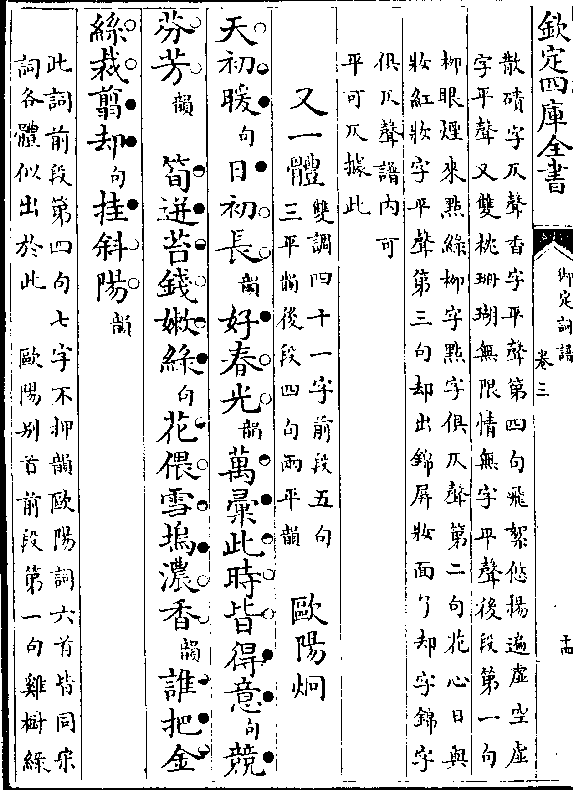 欽定四庫全書
御定詞譜
卷三
十四
散磧字仄聲香字平聲第四句飛絮悠揚遍虛空虛
字平聲又雙桃珊瑚無限情無字平聲後段第一句
柳眼煙來點綠柳字點字俱仄聲第二句花心日與
妝紅妝字平聲第三句却出錦屏妝面了却字錦字
俱仄聲譜內可
平可仄據此
又一體
雙調四十一字前段五句
三平韻後段四句兩平韻
歐陽炯
天初暖句日初長韻好春光韻萬彙此時皆得意句競
芬芳韻 筍迸苔錢嫩綠句花偎雪塢濃香韻誰把金
絲裁翦却句挂斜陽韻
此詞前段第四句七字不押韻歐陽詞六首皆同宋
詞各體似出於此 歐陽别首前段第一句雞樹綠